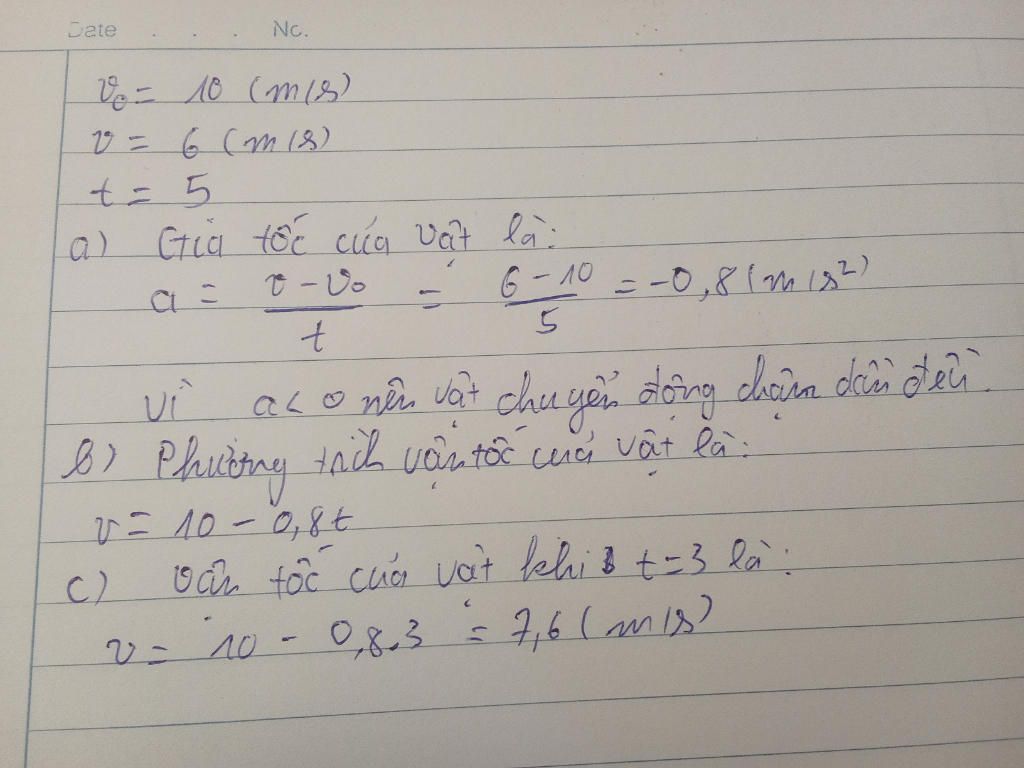 Date . . . No.
v₀ = 10 (m/s)
v = 6 (m/s)
t = 5
a) Gia tốc của vật là:
a = (v - v₀)/t = (6 - 10)/5 = -0,8 (m/s²)
Vì a < 0 nên vật chuyển động chậm dần đều.
b) Phương trình vận tốc của vật là:
v = 10 - 0,8t
c) Vận tốc của vật khi t = 3 là:
v = 10 - 0,8.3 = 7,6 (m/s)